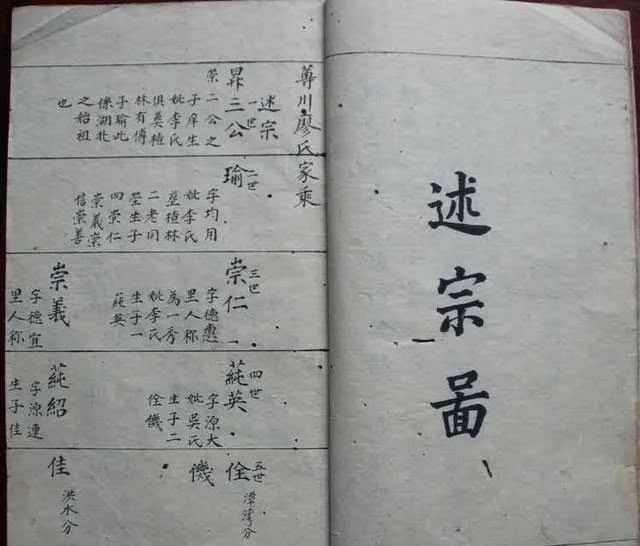 述宗啚
川廖氏家乘
一世
述宗
昇三公
榮二公之
子庠生
妣李氏
俱葬植
林有傳
子瑜此
係湖北
之始祖
也
二世
瑜
字均用
妣李氏
塟植林
二老同
塋生子
四崇仁
崇義崇
信崇善
三世
崇仁
字德惠
里人称
為一秀
妣李氏
生子一
蒓英
崇義
字德宜
里人称
四世
蒓英
字源大
妣吳氏
生子二
佺僟
蒓紹
字源連
生子佳
五世
佺
漳湾分
僟
佳
洪水分